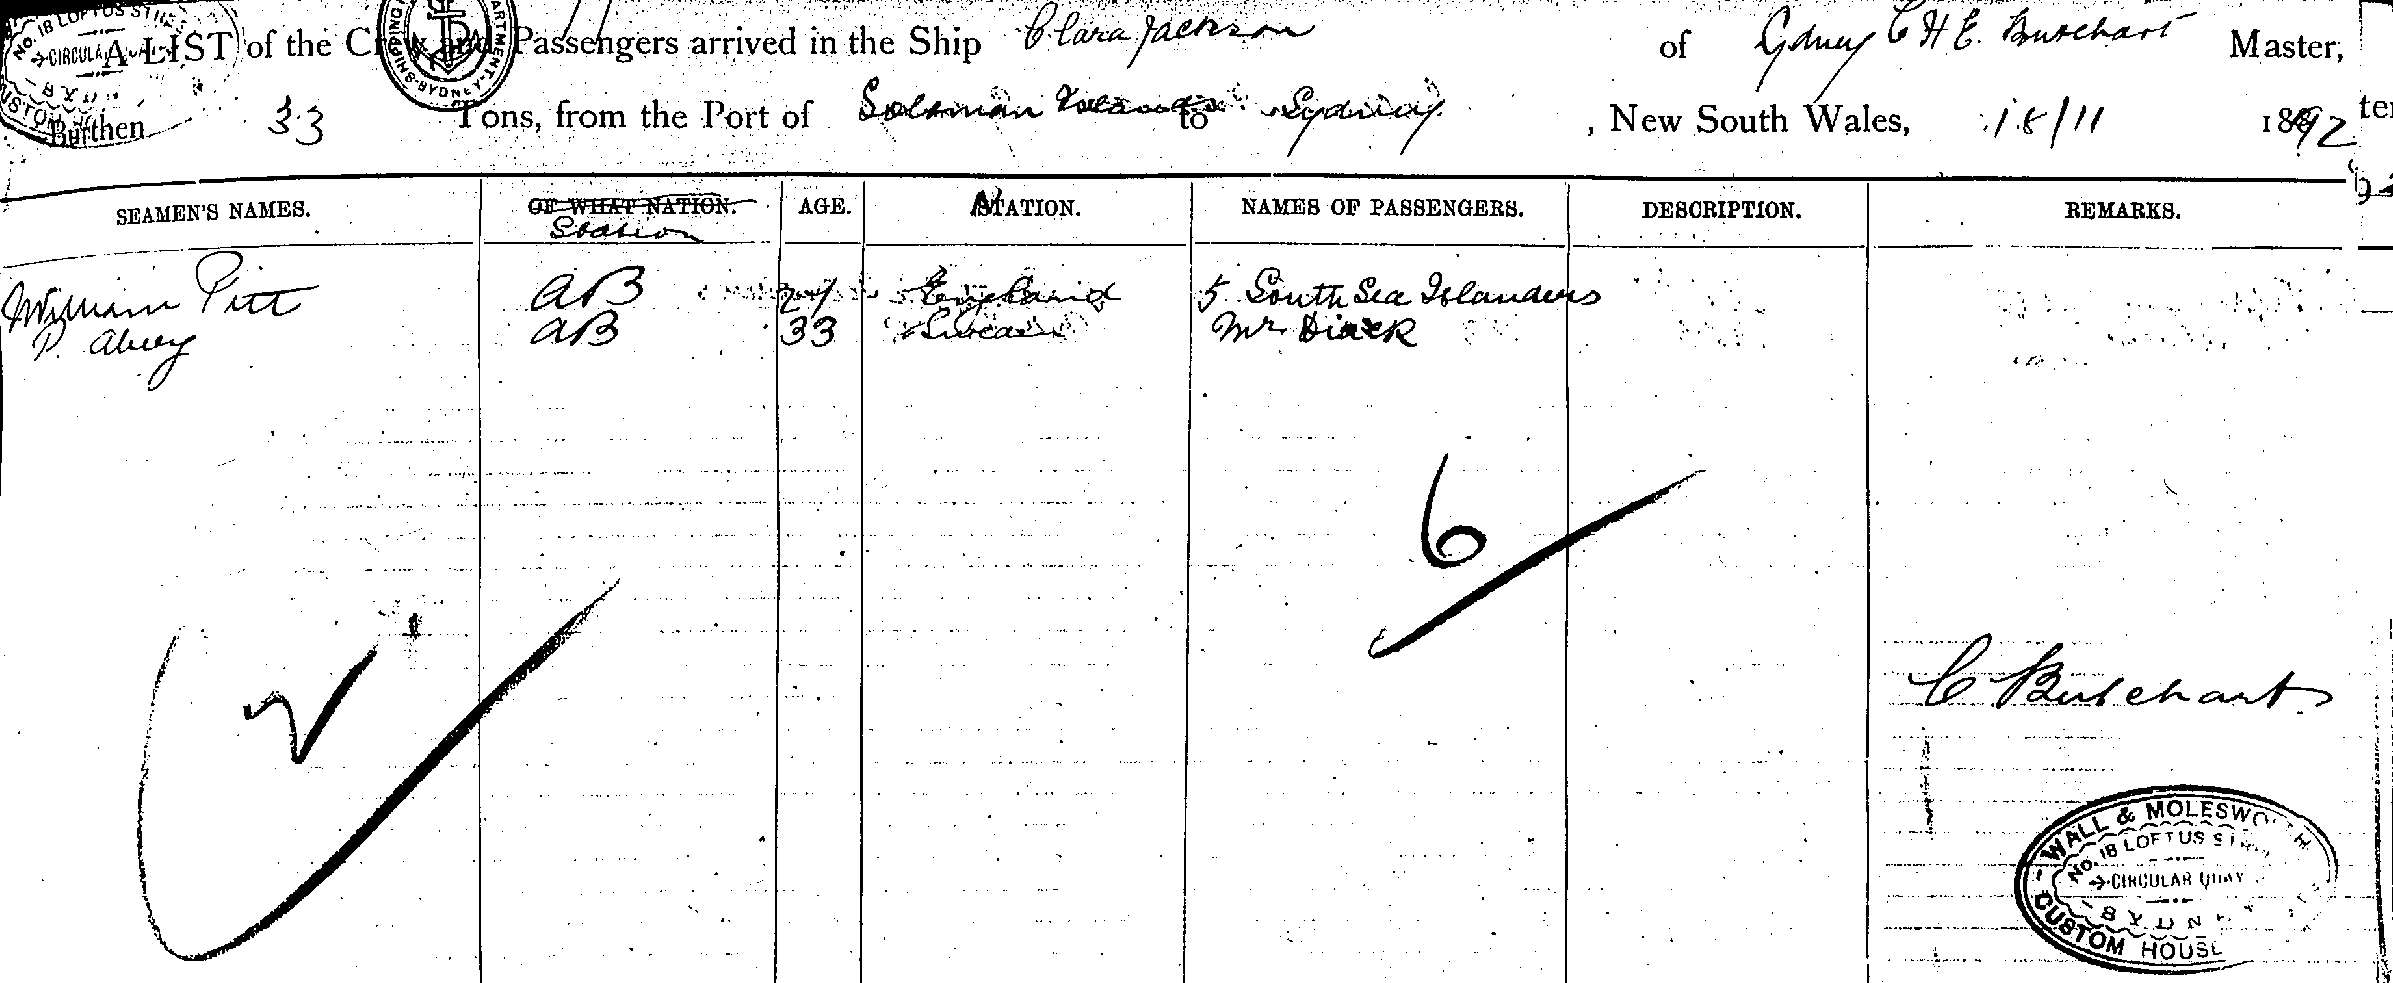 A LIST of the Crew and Passengers arrived in the Ship Clara Jackson of Sydney C H E. Burchart Master,
Burthen 33 Tons, from the Port of Soloman Islands to Sydney, New South Wales, 18/11 1892
SEAMEN'S NAMES. OF WHAT NATION. AGE. NATION. NAMES OF PASSENGERS. DESCRIPTION. REMARKS.
Station
William Pitt AB England 5 South Sea Islanders
P. AB 33 Mr
6
C Burchart
WALL & MOLESWORTH
No. 18 LOFTUS STREET
CIRCULAR QUAY
SYDNEY
CUSTOM HOUSE